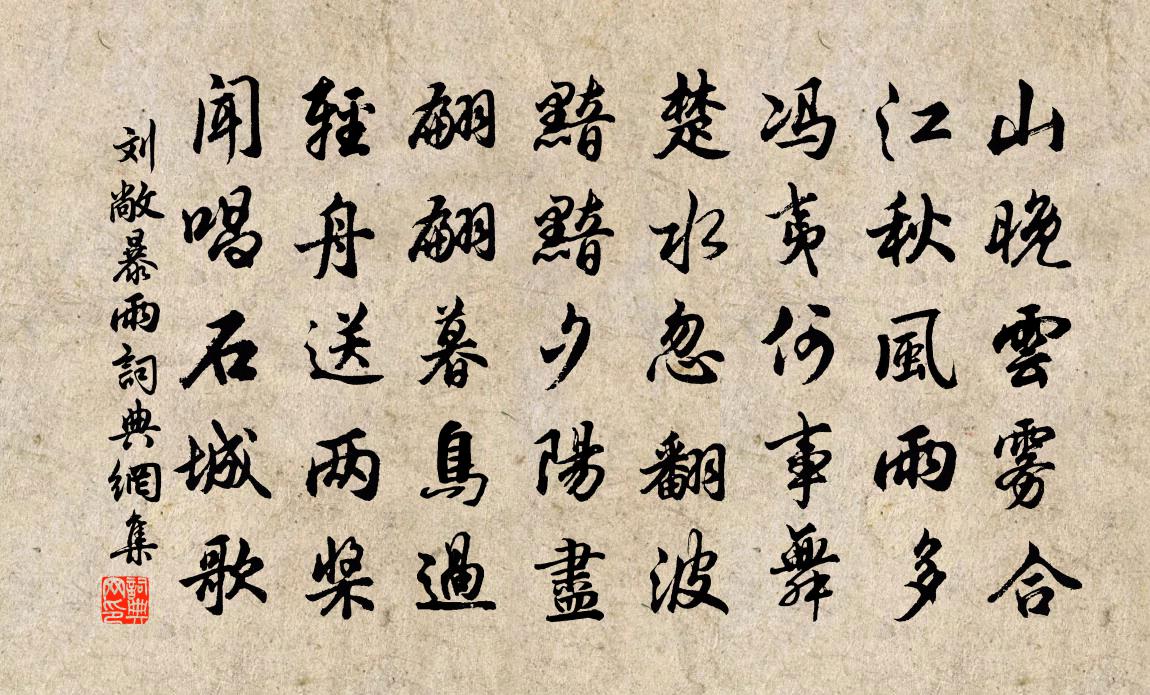 山晚雲雾合
江秋風雨多
冯夷何事舞
楚水忽翻波
黯黯夕陽盡
翩翩暮鳥過
輕舟送两桨
闻唱石城歌
刘敞暴雨詞典網集
詞典网印